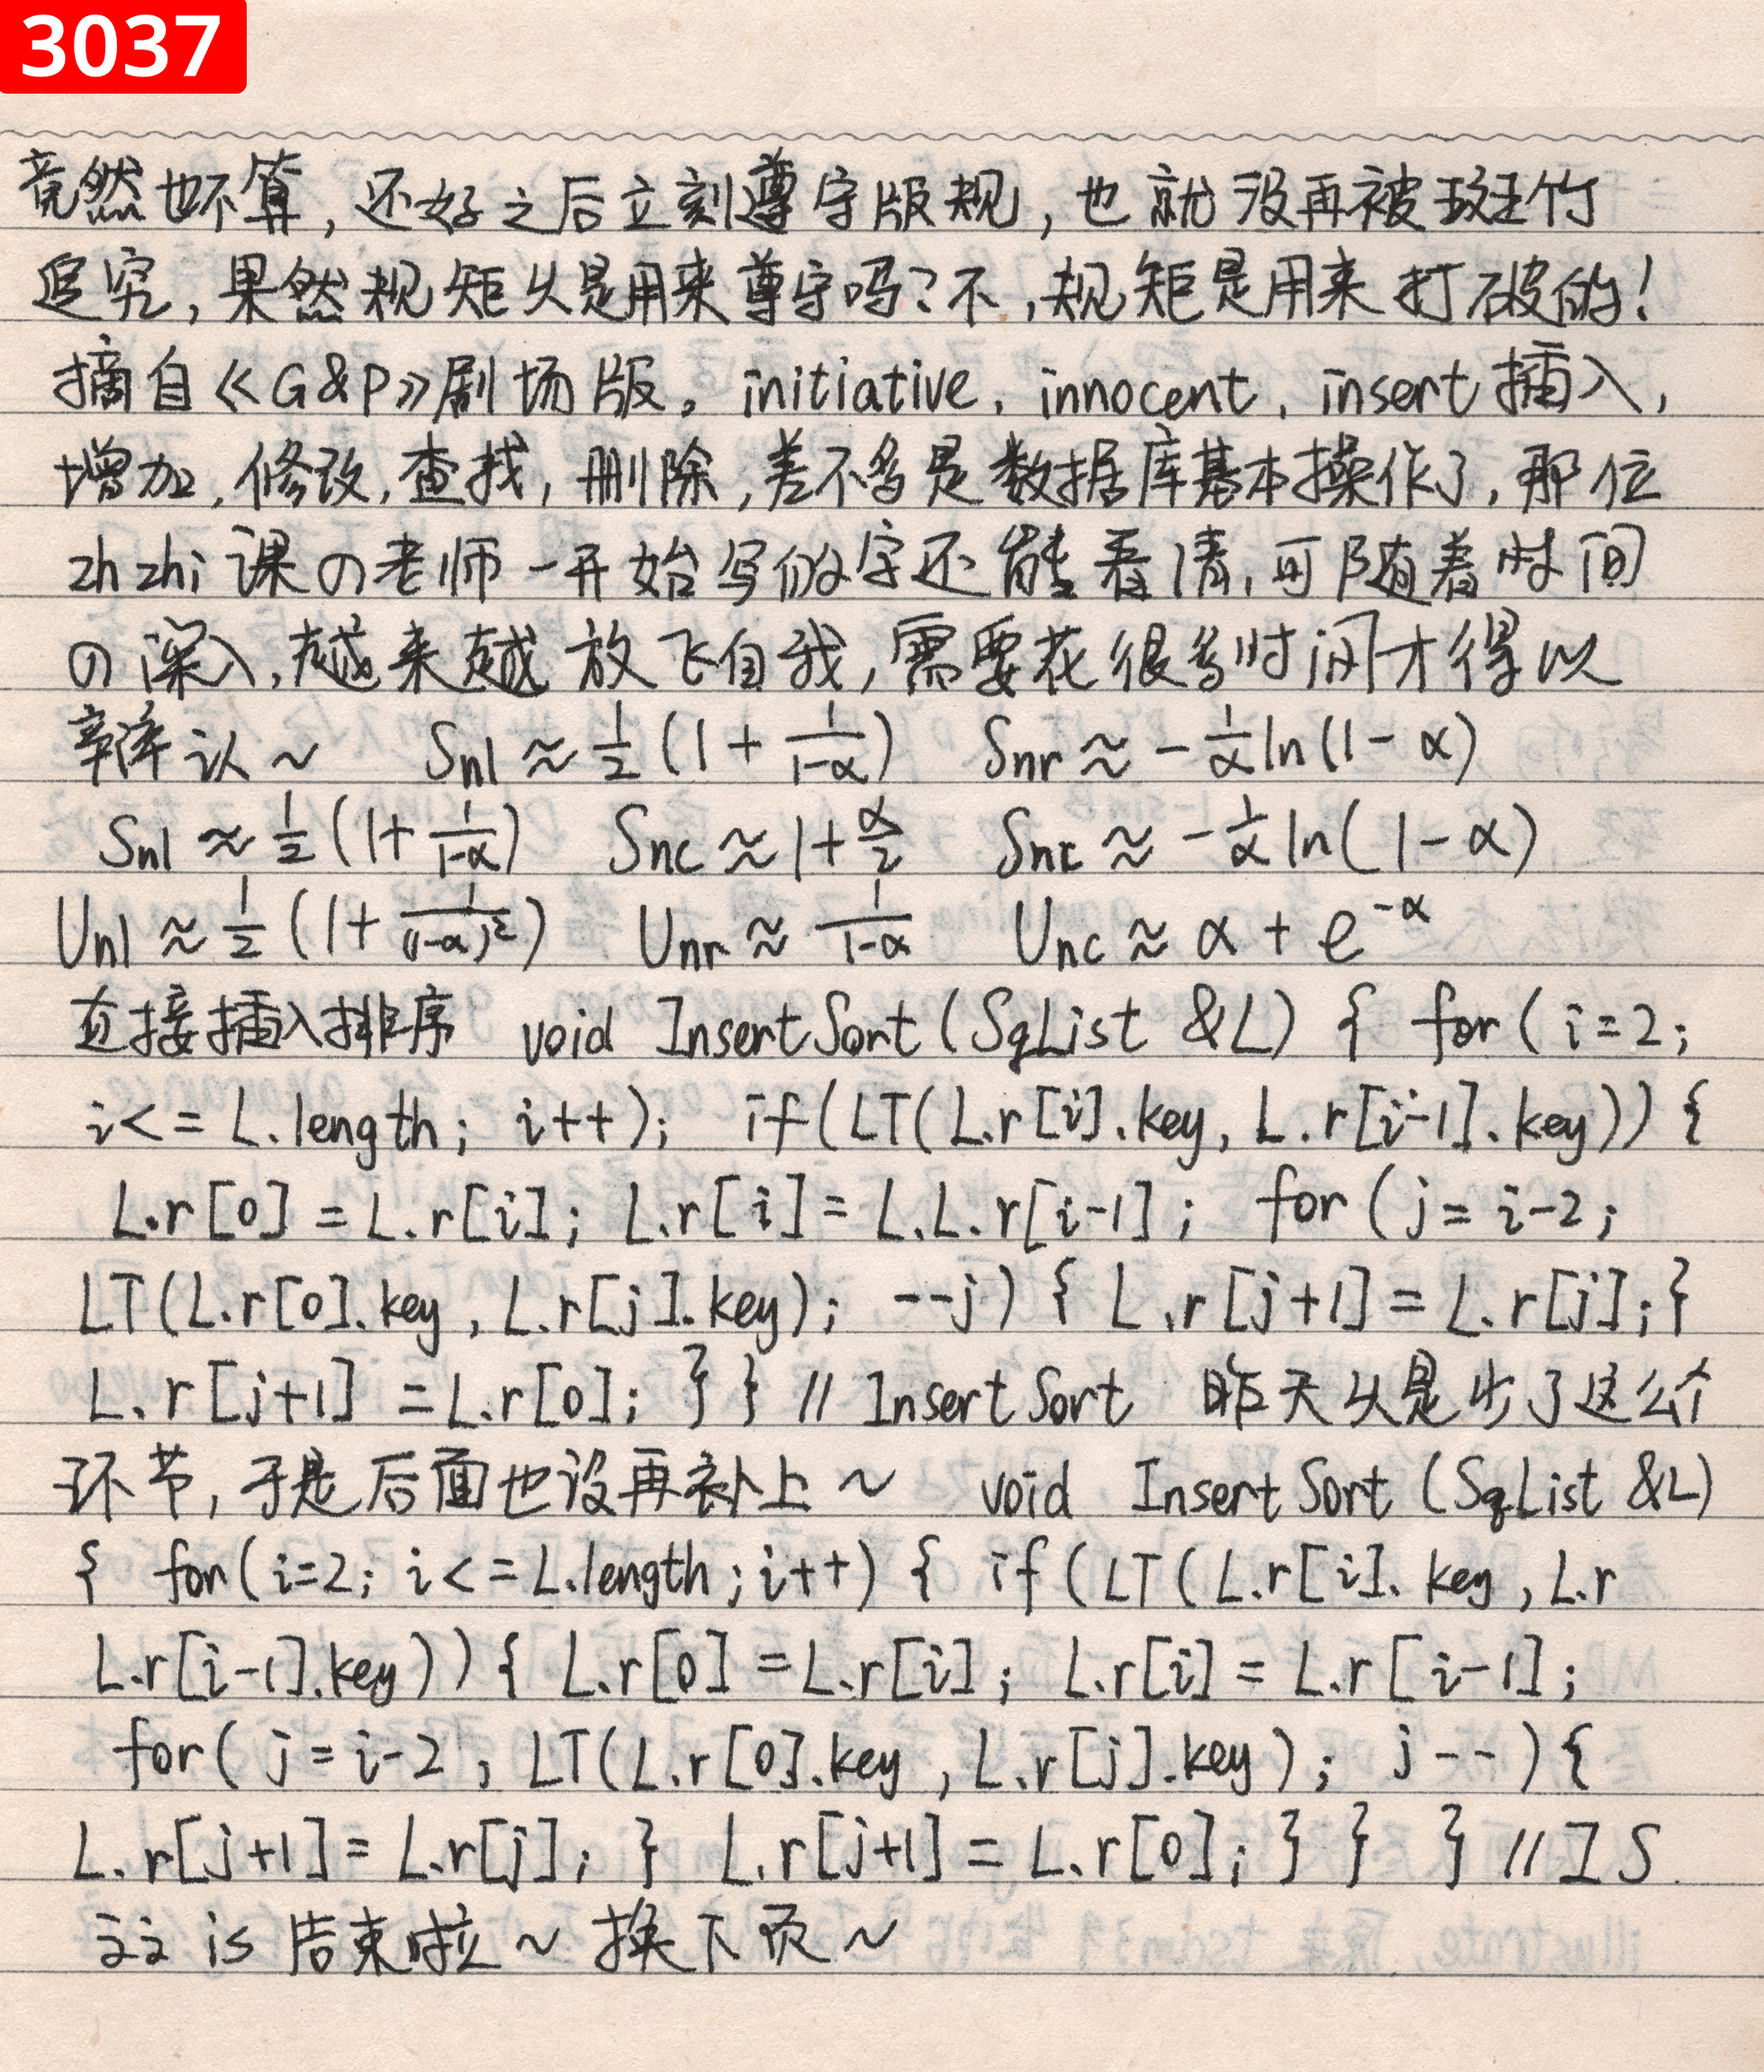 3037
竟然也不算，还好之后立刻遵守版规，也就没再被斑竹
追究，果然规矩只是用来尊守吗？不，规矩是用来打破的！
摘自《G&P》剧场版。initiative, innocent, insert 插入，
增加，修改，查找，删除，差不多是数据库基本操作了，那位
zh zhi 课の老师一开始写的字还能看清，可随着时间
の深入，越来越放飞自我，需要花很多时间才得以
辨认～ Snl ≈ 1/2 (1 + 1/(1-α)) Snr ≈ -1/α ln(1-α)
Snl ≈ 1/2 (1 + 1/(1-α)) Snc ≈ 1 + α/2 Snr ≈ -1/α ln(1-α)
Unl ≈ 1/2 (1 + 1/(1-α)²) Unr ≈ 1/(1-α) Unc ≈ α + e^-α
直接插入排序 void InsertSort(SqList &L) { for(i=2;
i<=L.length; i++); if(LT(L.r[i].key, L.r[i-1].key)) {
L.r[0] = L.r[i]; L.r[i] = L.L.r[i-1]; for(j=i-2;
LT(L.r[0].key, L.r[j].key); --j) { L.r[j+1] = L.r[j];}
L.r[j+1] = L.r[0]; } } // InsertSort 昨天只是少了这么个
环节，于是后面也没再补上～ void InsertSort (SqList &L)
{ for(i=2; i<=L.length; i++) { if(LT(L.r[i].key, L.r
L.r[i-1].key)) { L.r[0] = L.r[i]; L.r[i] = L.r[i-1];
for(j=i-2; LT(L.r[0].key, L.r[j].key); j--) {
L.r[j+1] = L.r[j]; } L.r[j+1] = L.r[0]; } } } // IS
is 结束啦～换下页～